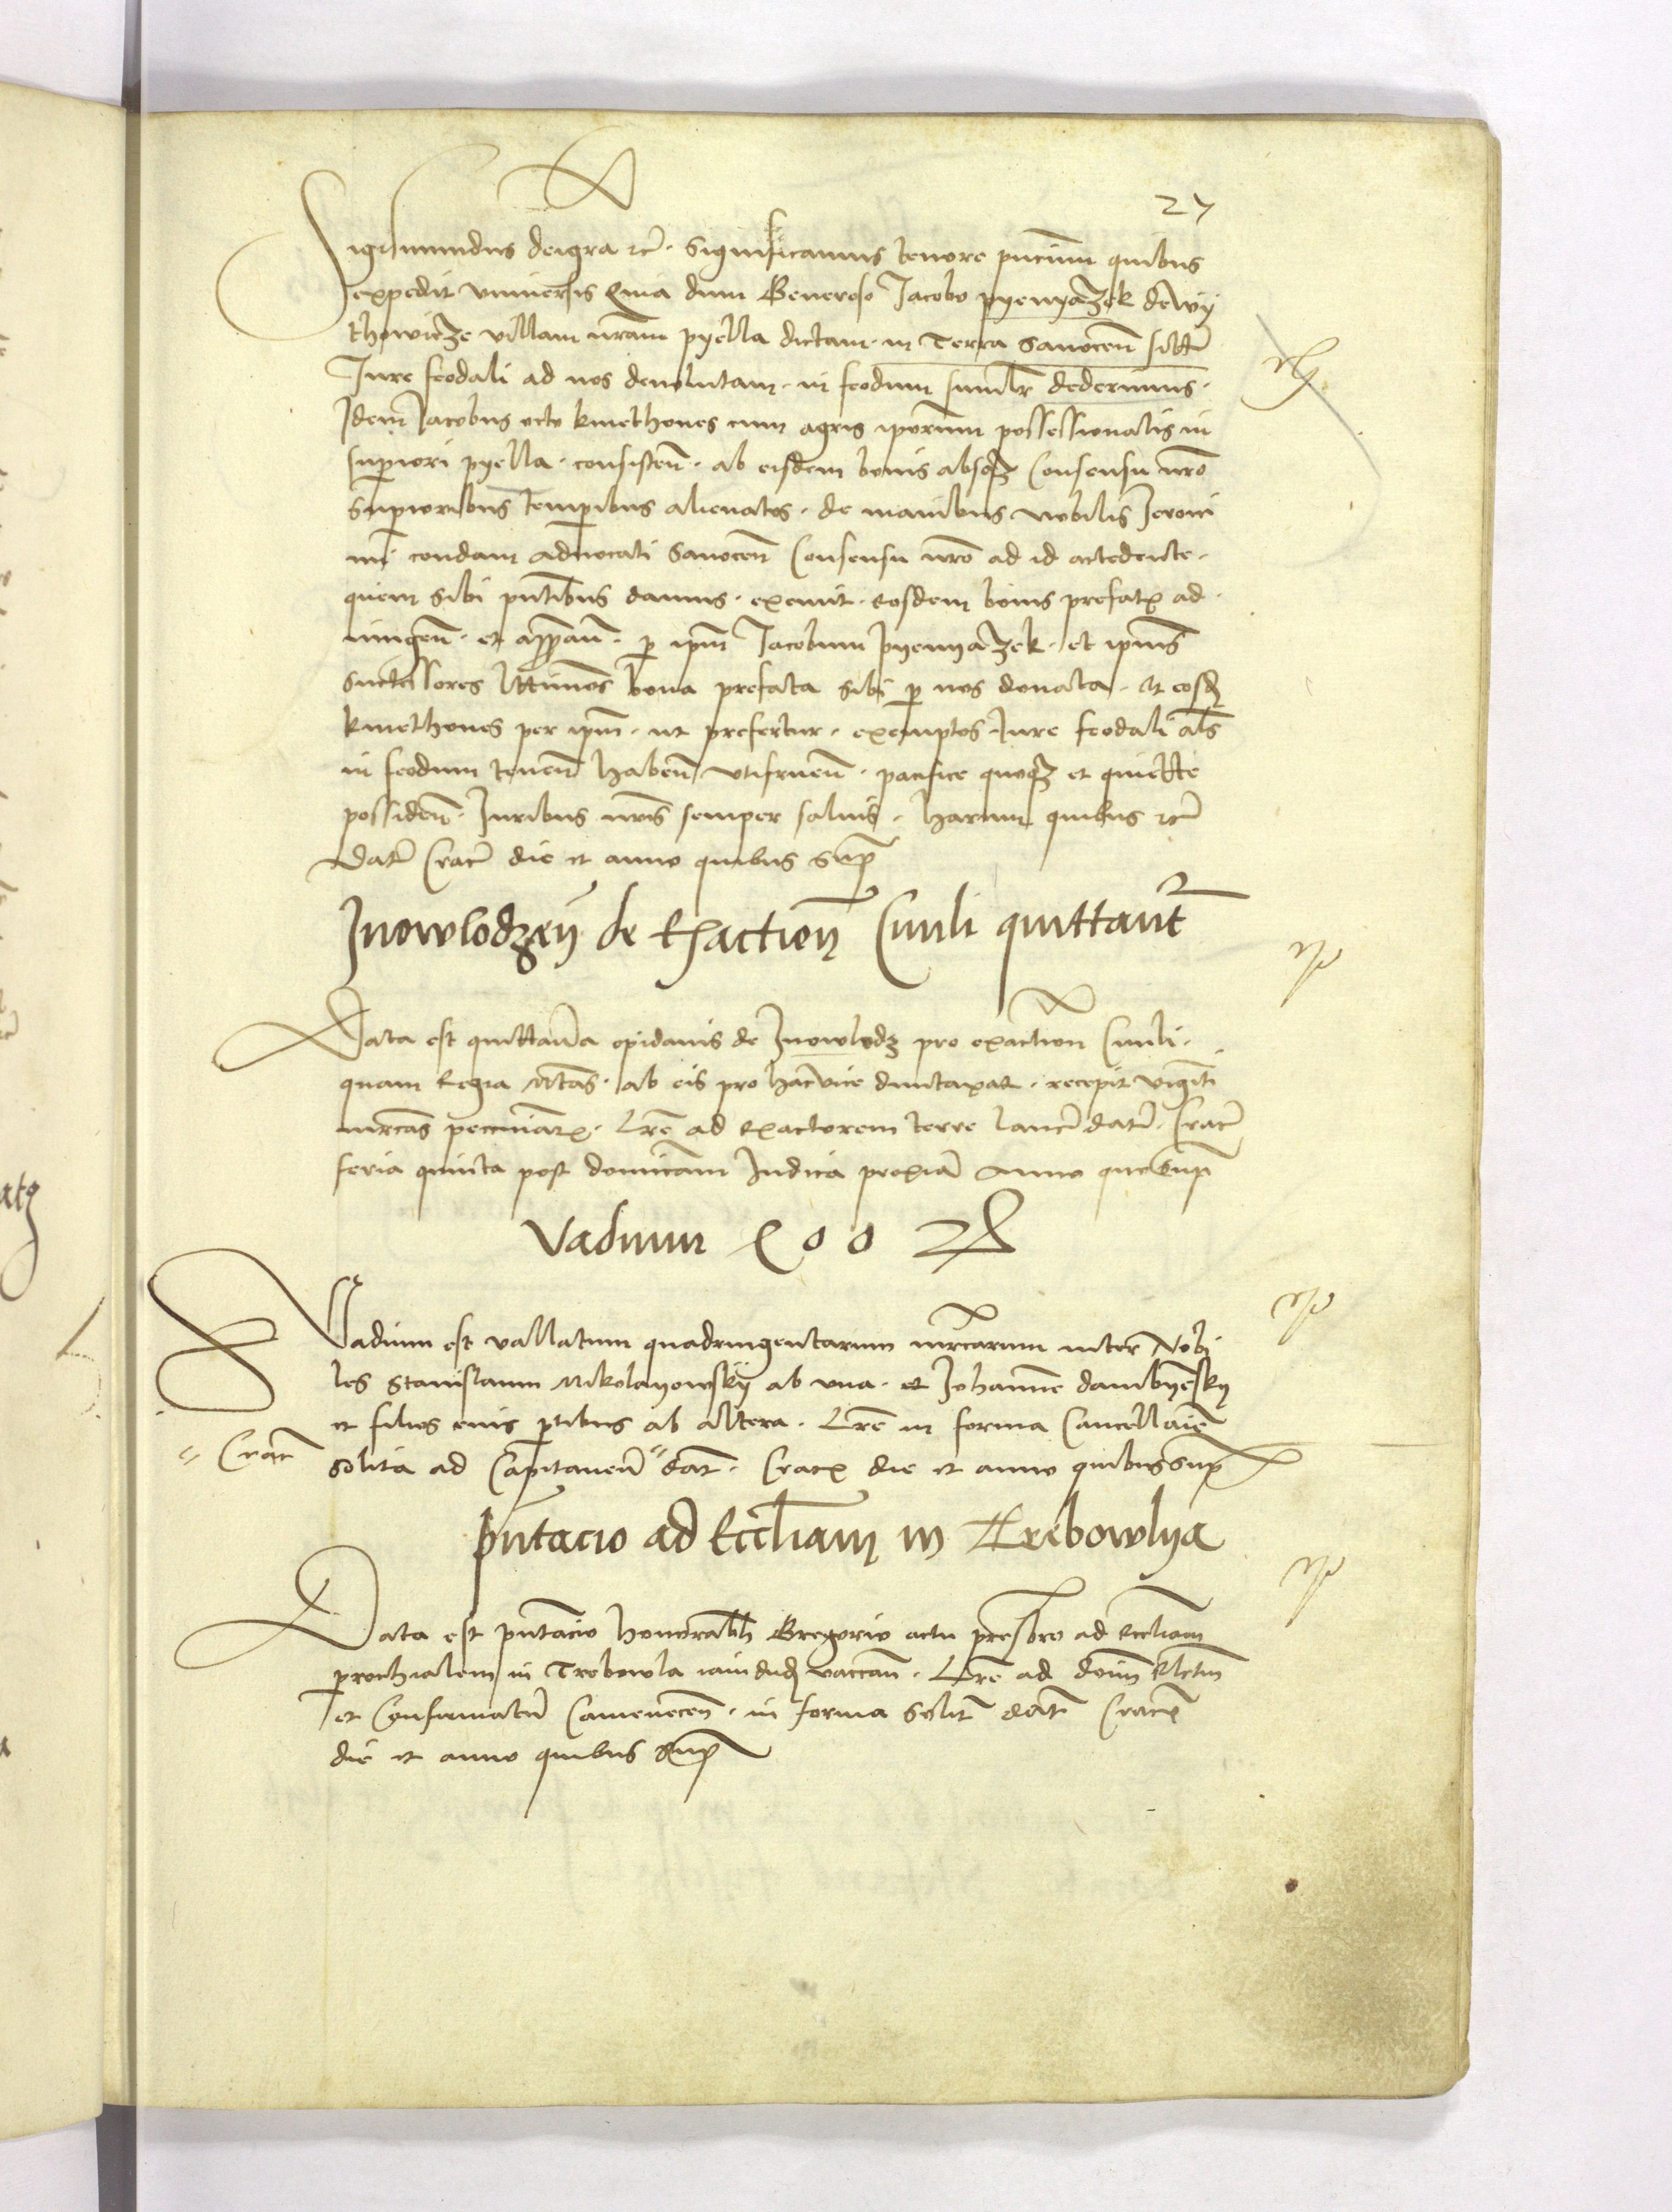 27
Sigismundus dei gra etc. Significamus tenore pncium quibus
expedit universis Quia dum Generoso Jacobo pyenyazek de Wy
thowicze villam nram pyella dictam in Terra Sanocen sitam
Jure feodali ad nos devolutam in feodum dederimus.
Idem Jacobus octo kmethones cum agris ipsorum possessionatis in
superiori pyella consisten. ab eisdem bonis absqz Consensu nro
Superioribus temporibus alienatos. de manibus Nobilis Jeroni
mi condam advocati Sanocen Consensu nro ad id accedente.
quem sibi pntibus damus. exemit. eosdem bonis prefatis ad
iungen. et per ipm Jacobum pyenyazek. et ipius
Successores lttimos bona prefata sibi per nos donata. et eosdem
kmethones per ipm. ut prefertur. exemptos Jure feodali als
in feodum tenen haben utifruen. pacifice quoqz et quiete
possiden. Juribus nris semper salvis. harum quibus etc
Dat Crac die et anno quibus Sup
Inowlodzen de Exaction Civili quittant
Data est quittancia opidanis de Inowlodz pro exaction Civili.
quam Regia Mtas. ab eis pro hac vice duntaxat. recepit viginti
mrcas pecuniar. Lre ad exactorem terre Lanc dat. Crac
feria quinta post dominicam Judica proxia Anno quo Sup
Vadium
Vadium est vallatum quadringentarum mrcarum inter Nobi
les Stanislaum Mikolayowsky ab una. et Johannem dambyensky
et filios eius ptibus ab altera. Lre in forma Cancellarie
solita ad Capitaneum " dat. Crac die et anno quibus sup
" Crac
pntacio ad Eccliam in Trebowlya
Data est pntacio honorabili Gregorio actu presbro ad Eccliam
prochialem in Trebowla iamdud vaccan. Lre ad dnm Elctum
et Confirmatum Camenecen. in forma Solit dat Crac
die et anno quibus Sup